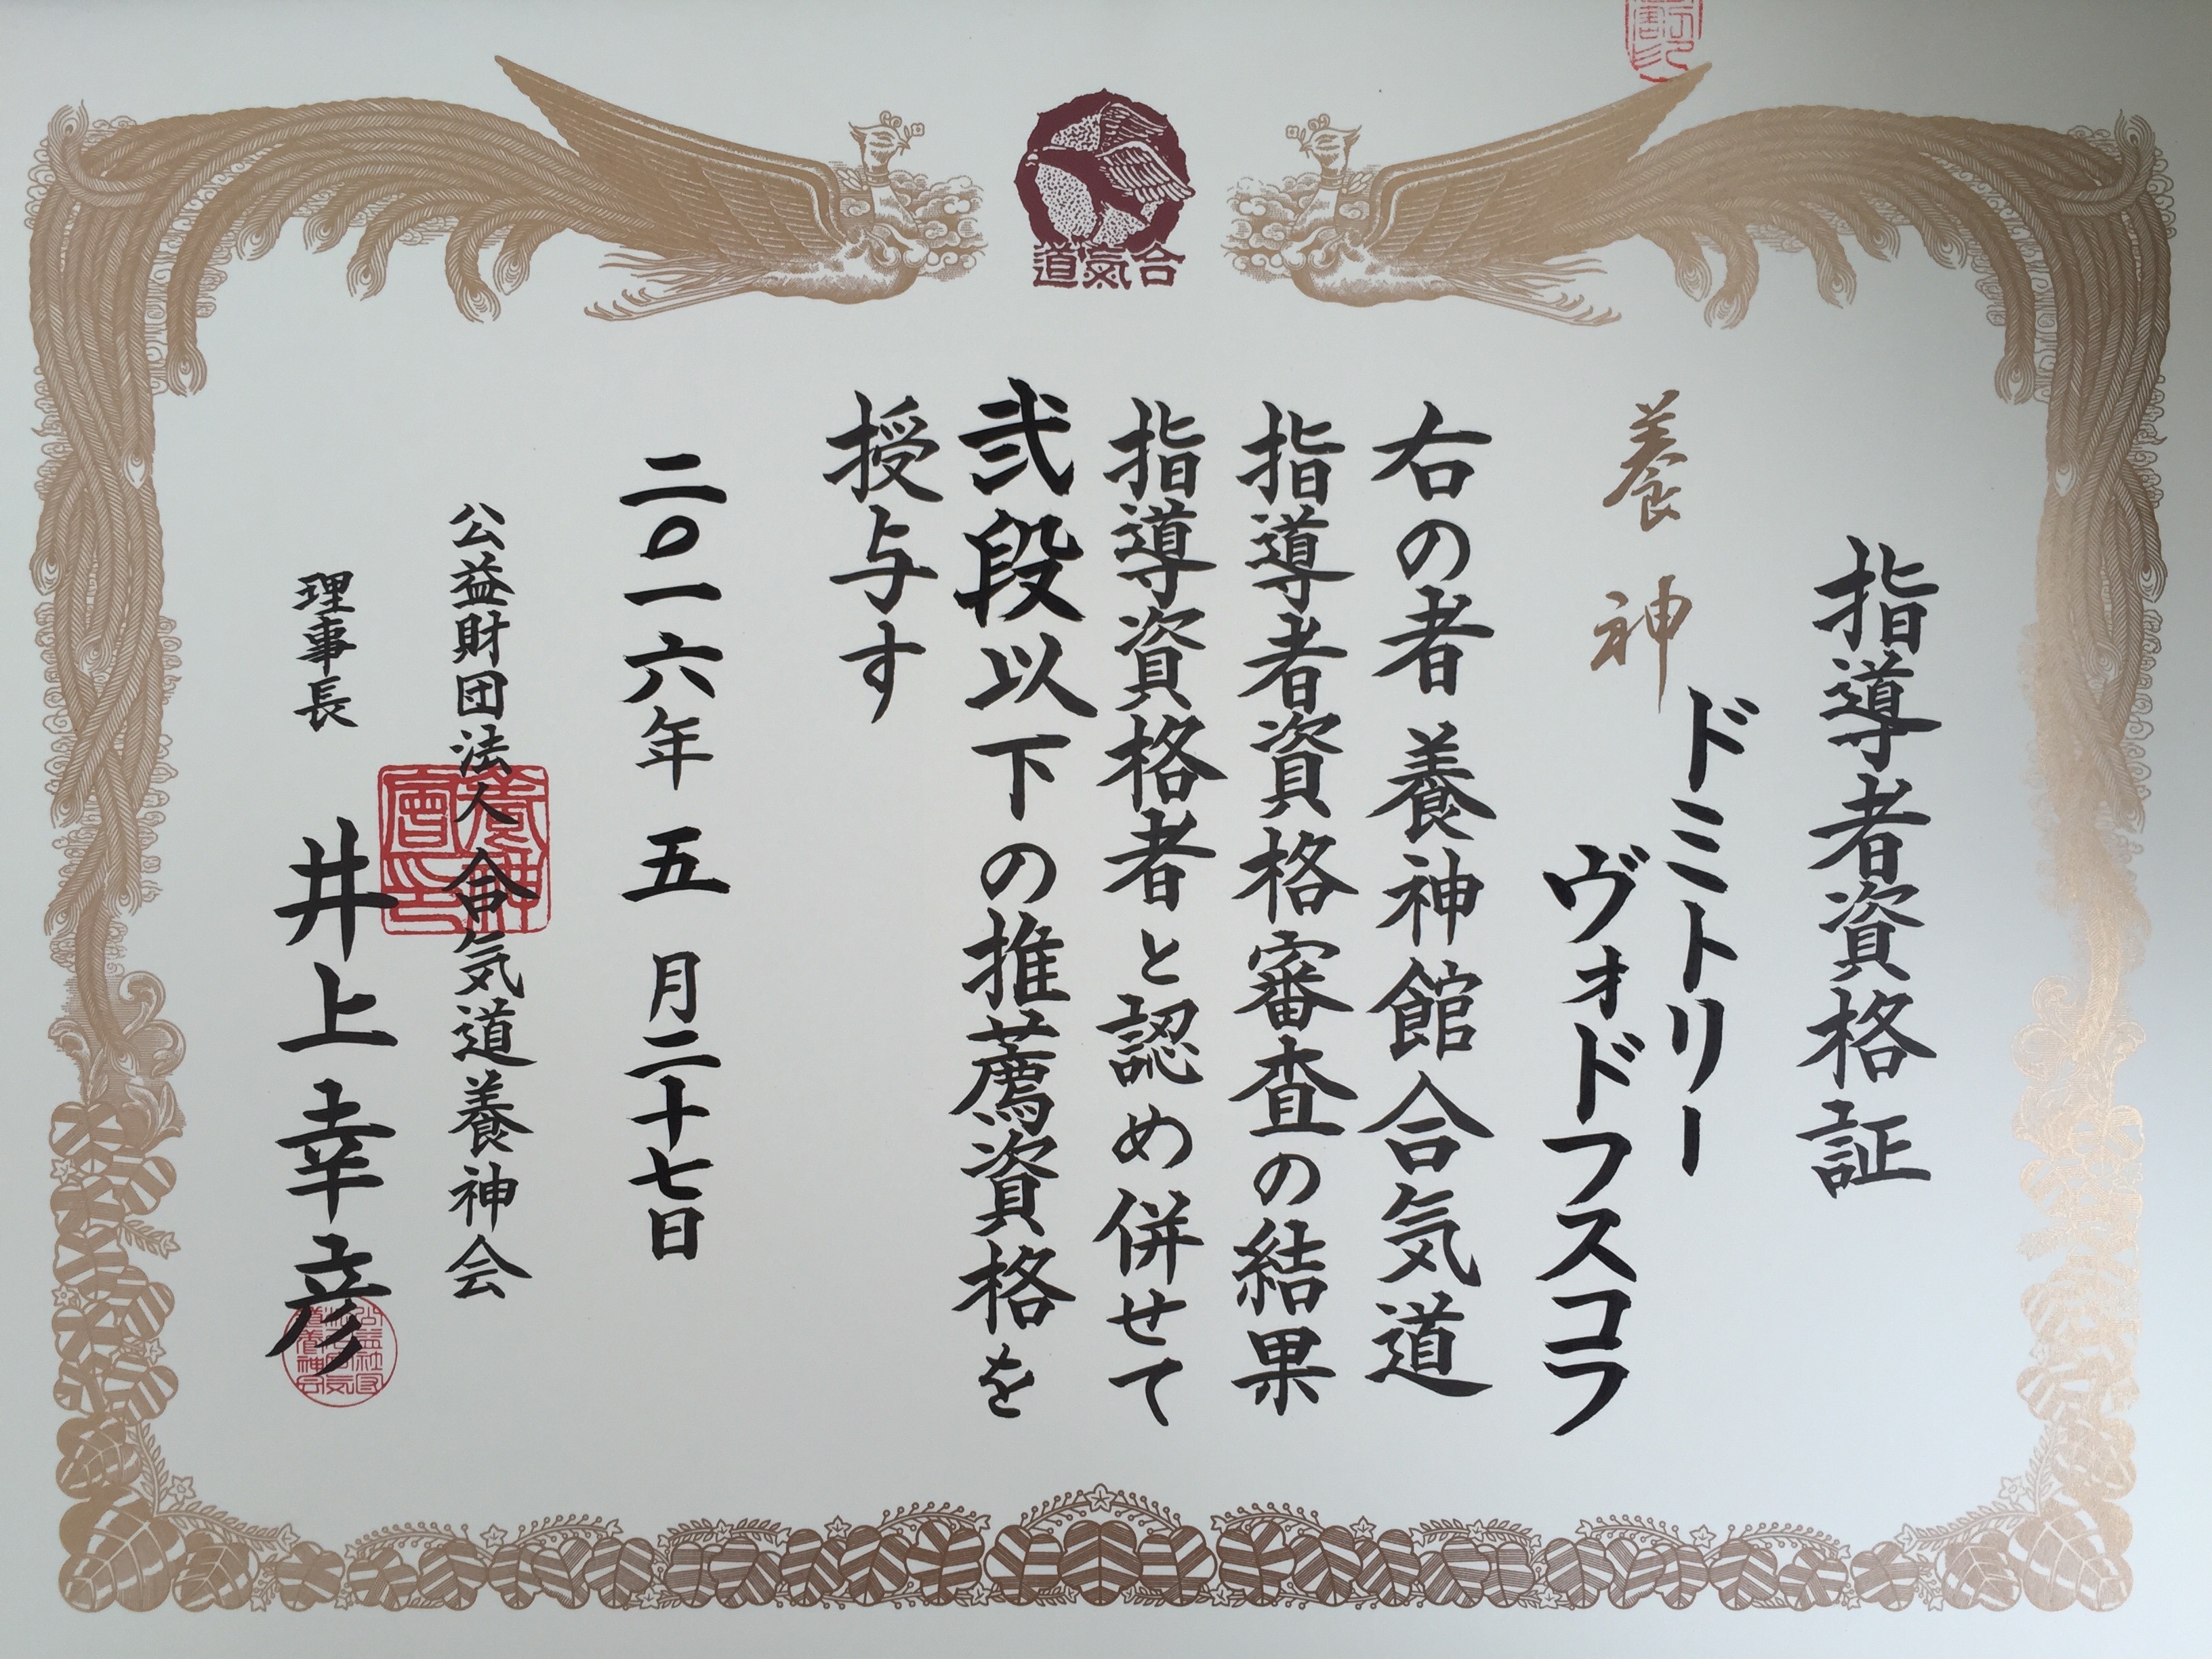 道氣合
指導者資格証
養神
ドミトリー
ヴォドフスコフ
右の者 養神館合気道
指導者資格審査の結果
指導資格者と認め併せて
弐段以下の推薦資格を
授与す
二〇一六年 五 月二十七日
公益財団法人 合気道養神会
理事長 井上幸彦